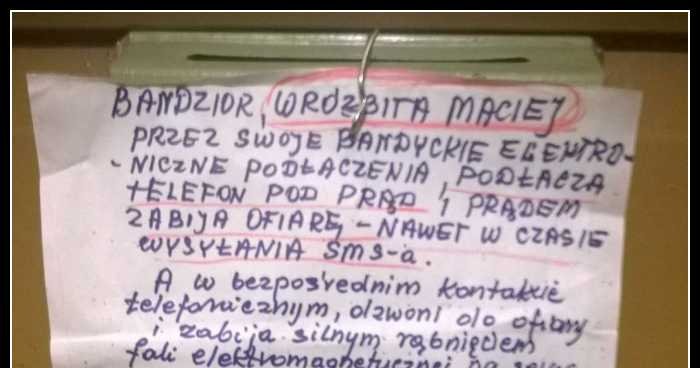 BANDZIOR, WRÓZBITA MACIEJ
PRZEZ SWOJE BANDYCKIE ELEKTRO-
-NICZNE PODŁACZENIA, PODŁACZA
TELEFON POD PRĄD, I PRĄDEM
ZABIJA OFIARĘ, - NAWET W CZASIE
WYSYŁANIA SMS-a.
A w bezpośrednim kontakcie
telefonicznym, dzwoni do ofiary
i zabija silnym rąbnięciem
fali elektromagnetycznej na